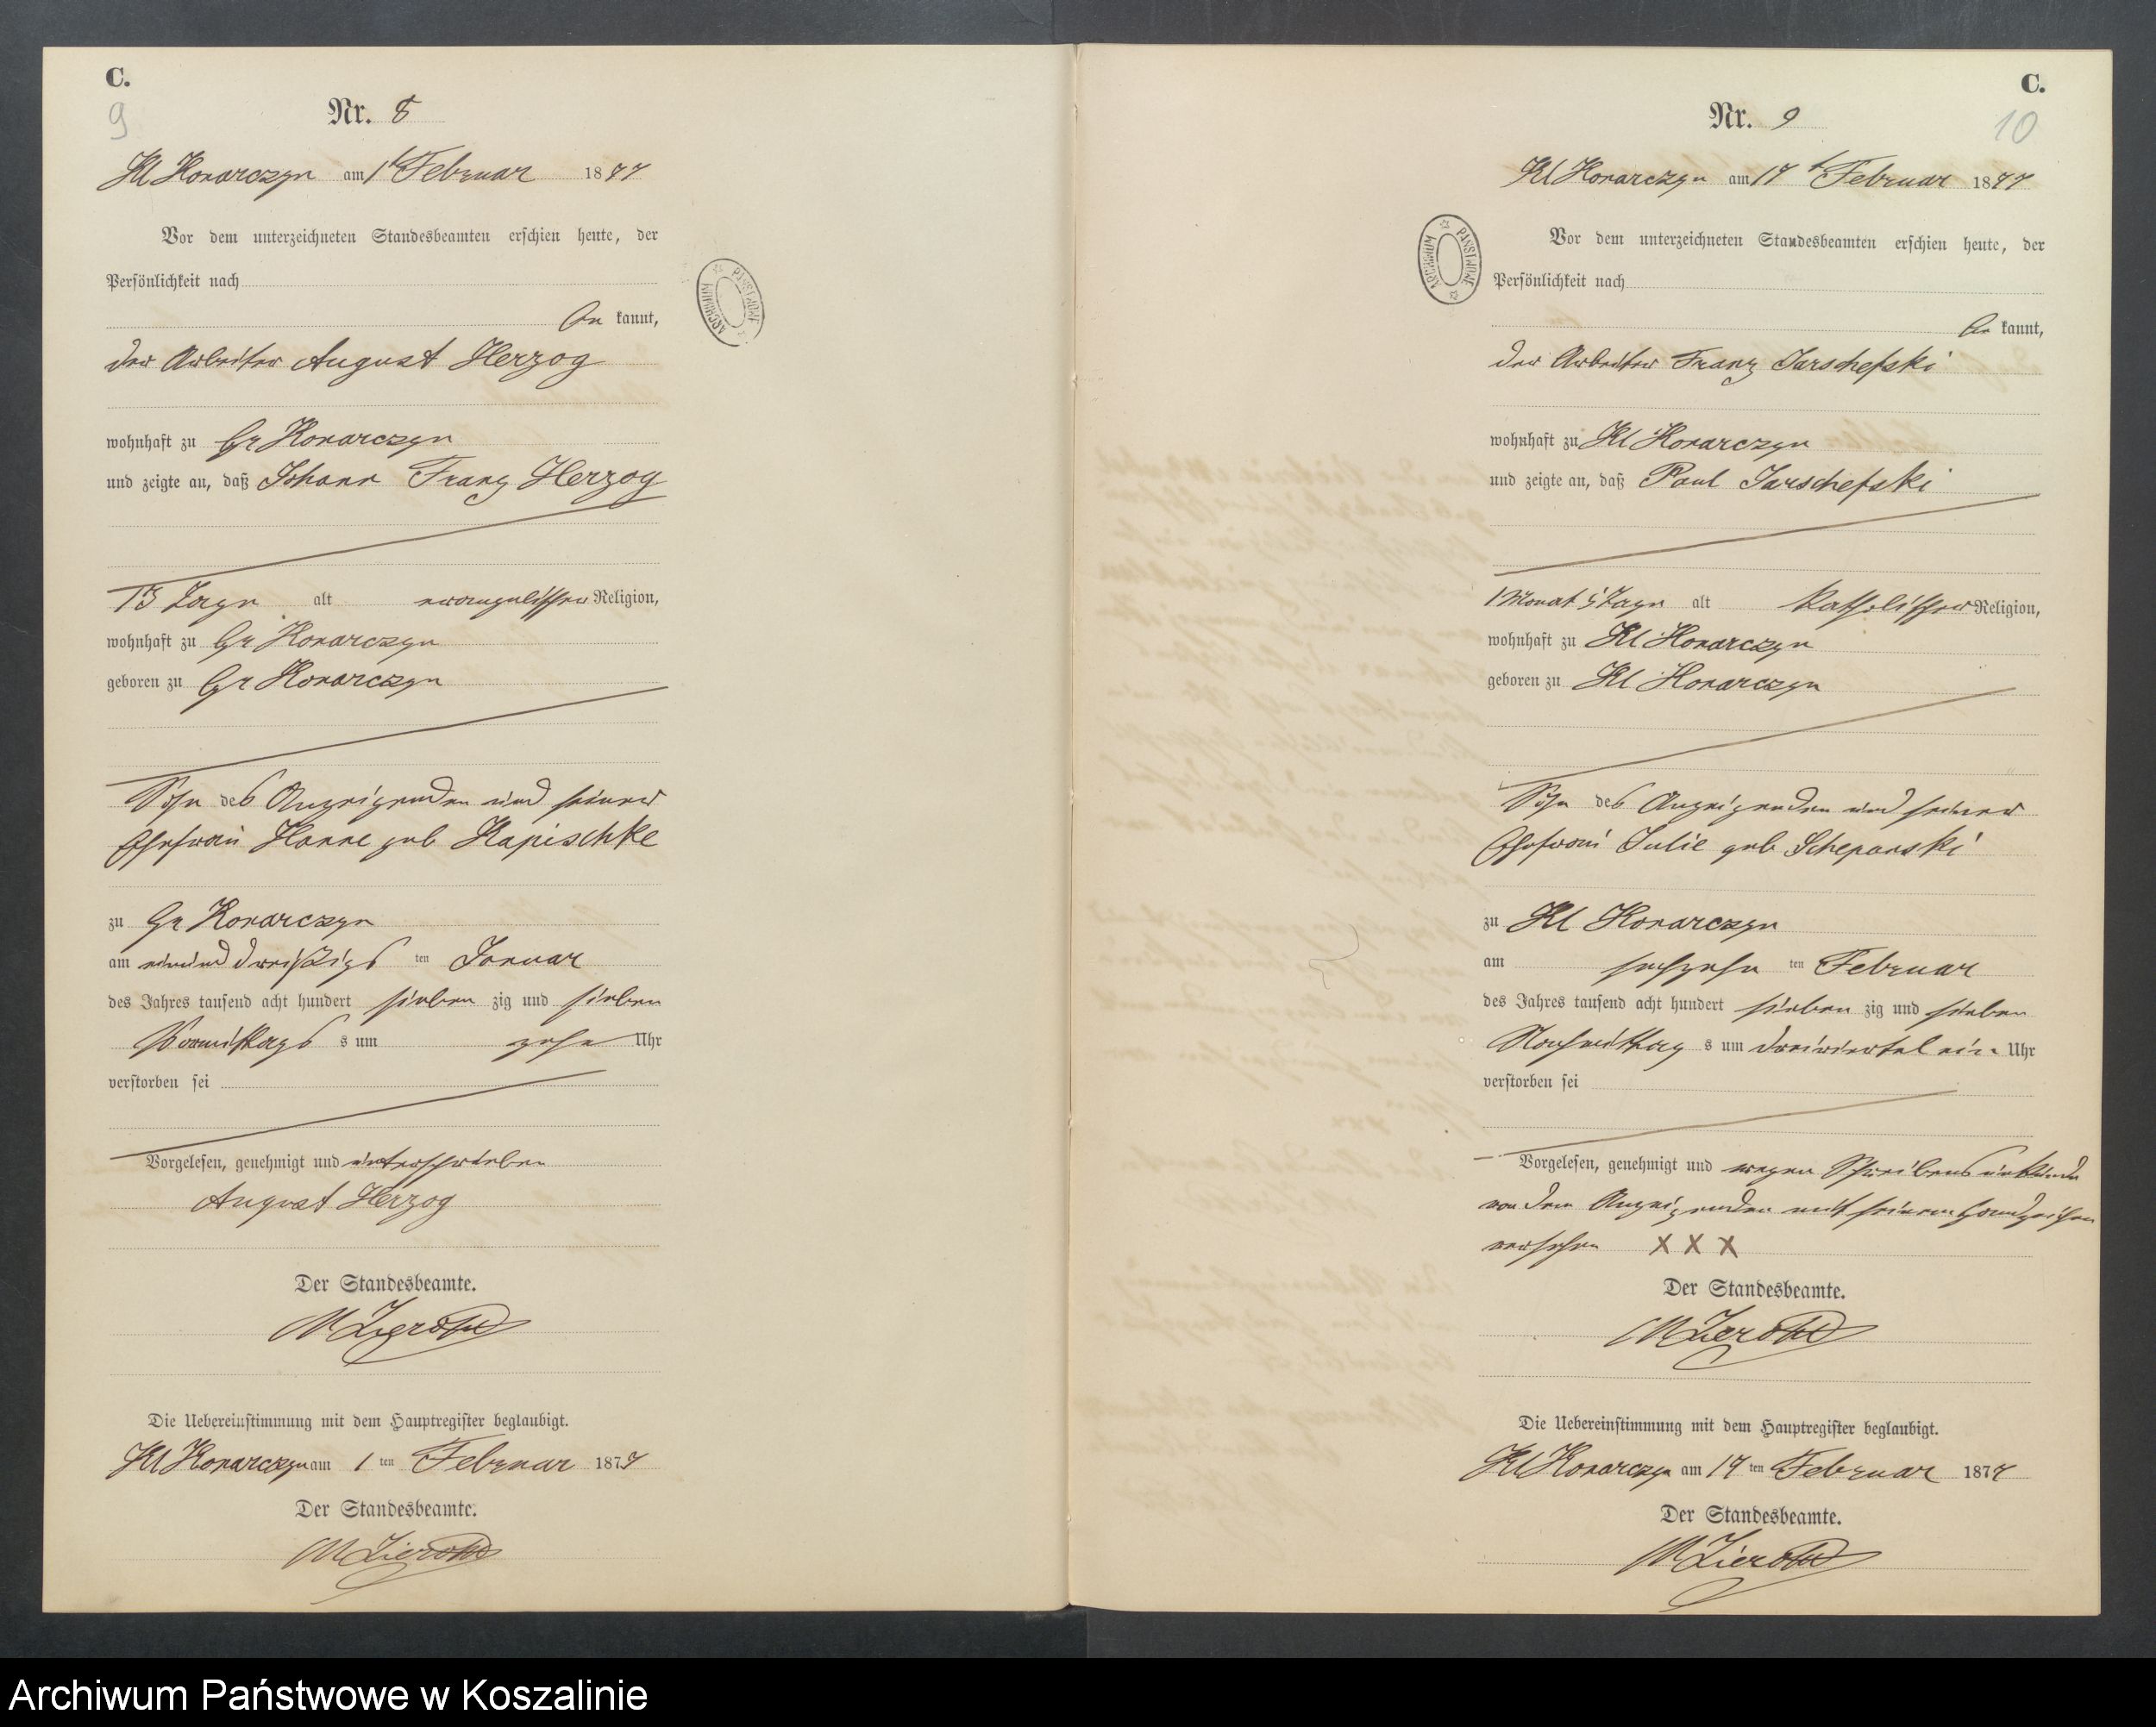 C.
9
Nr. 8
Kl Konarczyn am 1t Februar 1877
Vor dem unterzeichneten Standesbeamten erschien heute, der
Persönlichkeit nach
be kannt,
der Arbeiter August Herzog
wohnhaft zu Gr Konarczyn
und zeigte an, daß Johann Franz Herzog
13 Tage alt evangelischer Religion,
wohnhaft zu Gr Konarczyn
geboren zu Gr Konarczyn
Sohn des Anzeigenden und seiner
Ehefrau Hanne geb Kapischke
zu Gr Konarczyn
am einund dreißigs ten Januar
des Jahres tausend acht hundert sieben zig und sieben
Vormittags s um zehn Uhr
verstorben sei
Vorgelesen, genehmigt und unterschrieben
August Herzog
Der Standesbeamte.
Die Uebereinstimmung mit dem Hauptregister beglaubigt.
Kl Konarczyn am 1 ten Februar 1877
Der Standesbeamte.
ARCHIWUM PAŃSTWOWE
C.
10
Nr. 9
Kl Konarczyn am 17 t Februar 1877
Vor dem unterzeichneten Standesbeamten erschien heute, der
Persönlichkeit nach
be kannt,
der Arbeiter Franz Jarschefski
wohnhaft zu Kl Konarczyn
und zeigte an, daß Paul Jarschefski
1 Monat 5 Tage alt katholischer Religion,
wohnhaft zu Kl Konarczyn
geboren zu Kl Konarczyn
Sohn des Anzeigenden und seiner
Ehefrau Julie geb Scheparski
zu Kl Konarczyn
am sechzehn ten Februar
des Jahres tausend acht hundert sieben zig und sieben
Nachmittag s um dreiviertel ein Uhr
verstorben sei
Vorgelesen, genehmigt und wegen Schreibensunkunde
von dem Anzeigenden mit seinem Handzeichen
versehen X X X
Der Standesbeamte.
Die Uebereinstimmung mit dem Hauptregister beglaubigt.
Kl Konarczyn am 17 ten Februar 1877
Der Standesbeamte.
ARCHIWUM PAŃSTWOWE
Archiwum Państwowe w Koszalinie